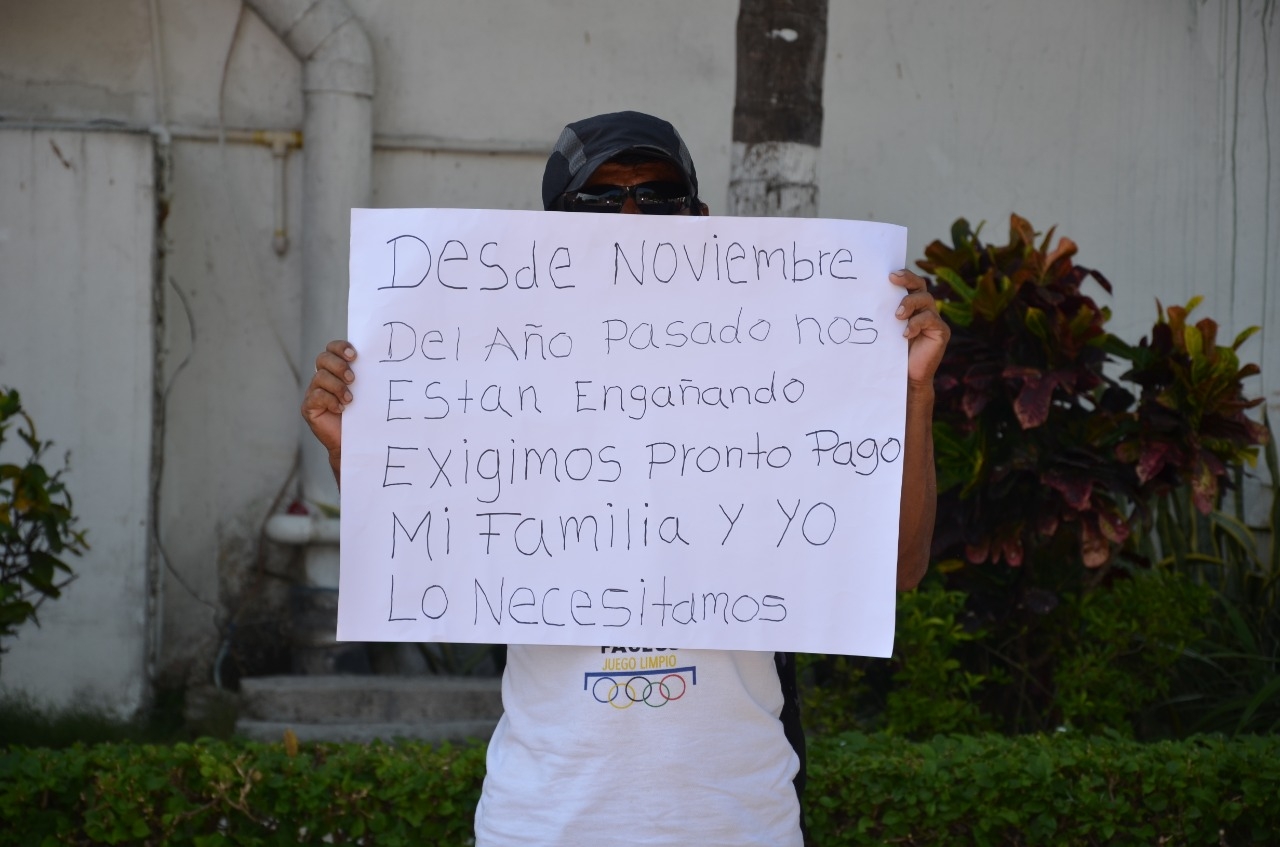 Desde Noviembre
Del Año Pasado nos
Estan Engañando
Exigimos Pronto Pago
Mi Familia y yo
Lo Necesitamos
JUEGO LIMPIO